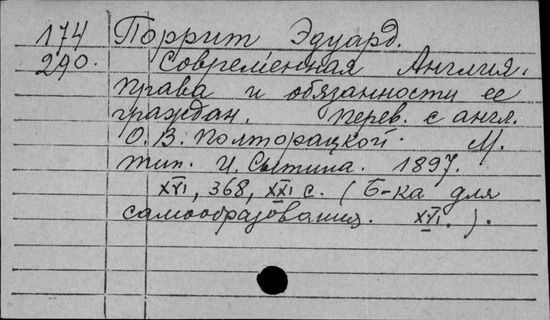 174 Поррит Эдуард.
290. Современная Англия.
права и обязанности ее
граждан. Перев. с англ.
О.В. Полторацкой. М.
тип. И. Сытина. 1897.
XVI, 368, XXI с. (Б-ка для
самообразования. XVI.).